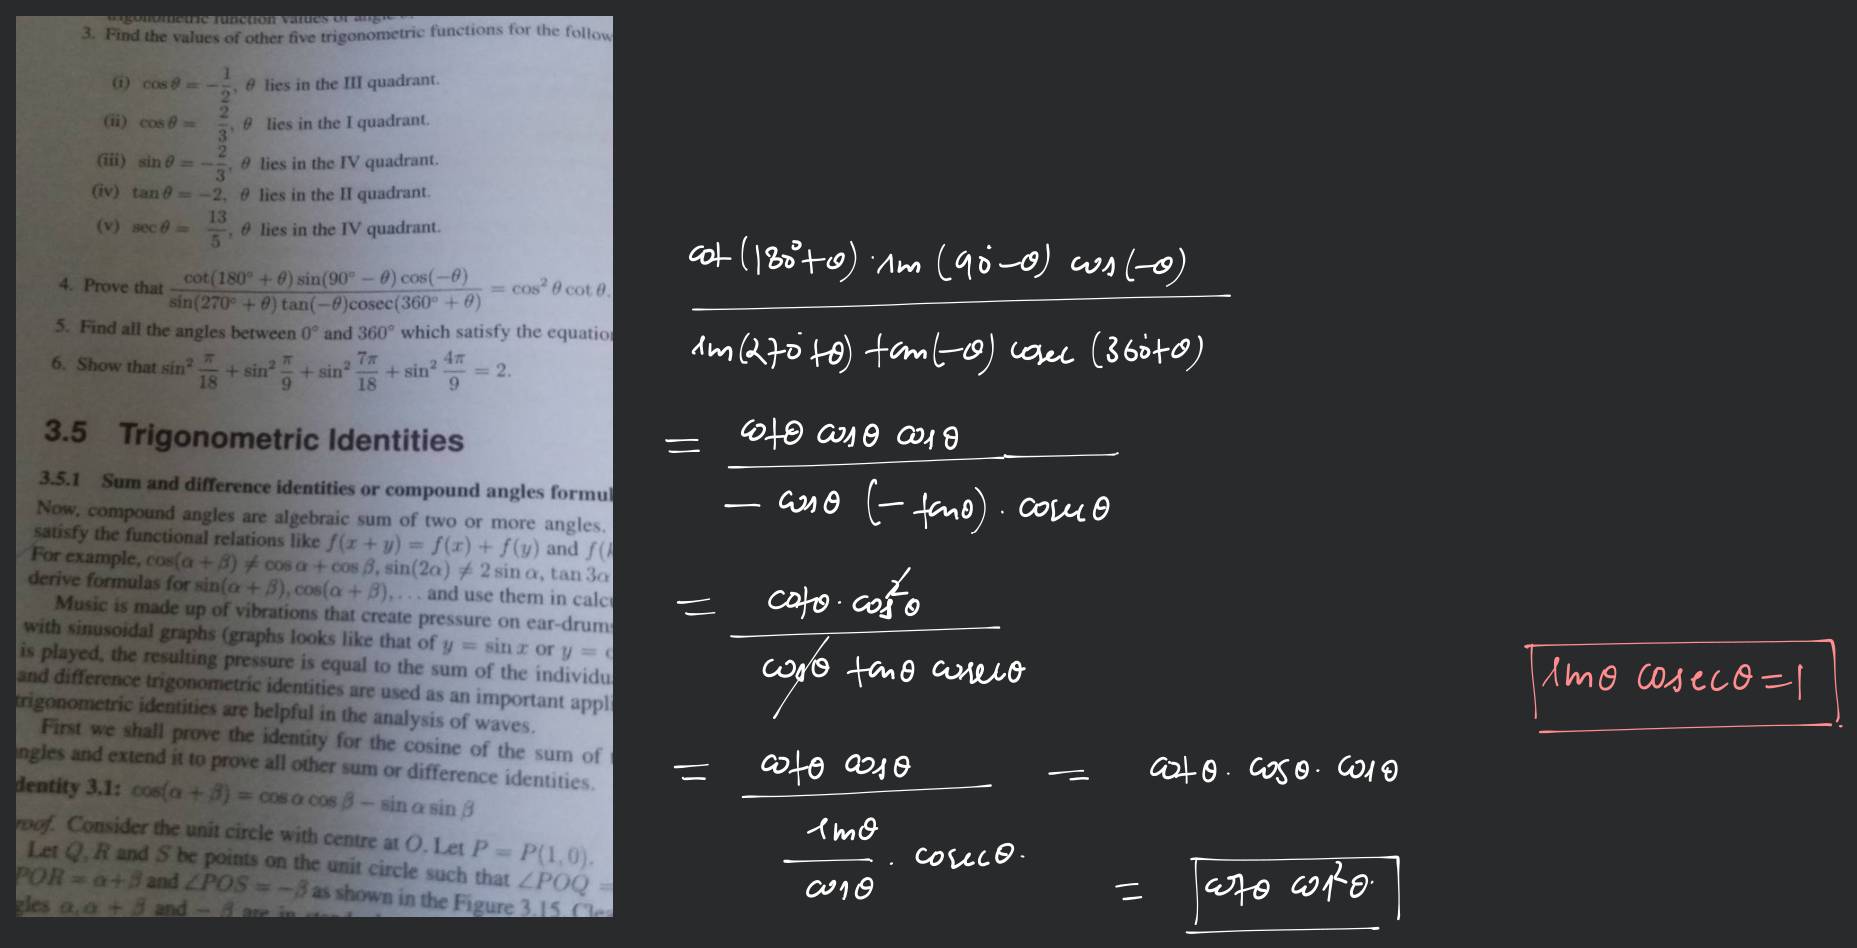 trigonometric function values of
3. Find the values of other five trigonometric functions for the follow
(i) cos θ = −1/2, θ lies in the III quadrant.
(ii) cos θ = 2/3, θ lies in the I quadrant.
(iii) sin θ = −2/3, θ lies in the IV quadrant.
(iv) tan θ = −2, θ lies in the II quadrant.
(v) sec θ = 13/5, θ lies in the IV quadrant.
4. Prove that cot(180° + θ) sin(90° − θ) cos(−θ) / sin(270° + θ) tan(−θ)cosec(360° + θ) = cos² θ cot θ.
5. Find all the angles between 0° and 360° which satisfy the equatio
6. Show that sin² π/18 + sin² π/9 + sin² 7π/18 + sin² 4π/9 = 2.
3.5 Trigonometric Identities
3.5.1 Sum and difference identities or compound angles formul
Now, compound angles are algebraic sum of two or more angles.
satisfy the functional relations like f(x + y) = f(x) + f(y) and f(
For example, cos(α + β) ≠ cos α + cos β, sin(2α) ≠ 2 sin α, tan 3α
derive formulas for sin(α + β), cos(α + β), . . . and use them in calc
Music is made up of vibrations that create pressure on ear-drum
with sinusoidal graphs (graphs looks like that of y = sin x or y =
is played, the resulting pressure is equal to the sum of the individu
and difference trigonometric identities are used as an important appl
trigonometric identities are helpful in the analysis of waves.
First we shall prove the identity for the cosine of the sum of
ngles and extend it to prove all other sum or difference identities.
dentity 3.1: cos(α + β) = cos α cos β − sin α sin β
roof. Consider the unit circle with centre at O. Let P = P(1, 0).
Let Q, R and S be points on the unit circle such that ∠POQ =
POR = α+β and ∠POS = −β as shown in the Figure 3.15.
gles α, α + β and − β are in
cot (180°+θ) · sin (90°−θ) cos (−θ)
sin(270°+θ) tan(−θ) cosec (360°+θ)
= cotθ cosθ cosθ
− cosθ (− tanθ) · cosecθ
= cotθ · cos²θ
cosθ tanθ cosecθ
sinθ cosecθ = 1
= cotθ cosθ = cotθ · cosθ · cosθ
sinθ/cosθ · cosecθ.
= cotθ cos²θ.